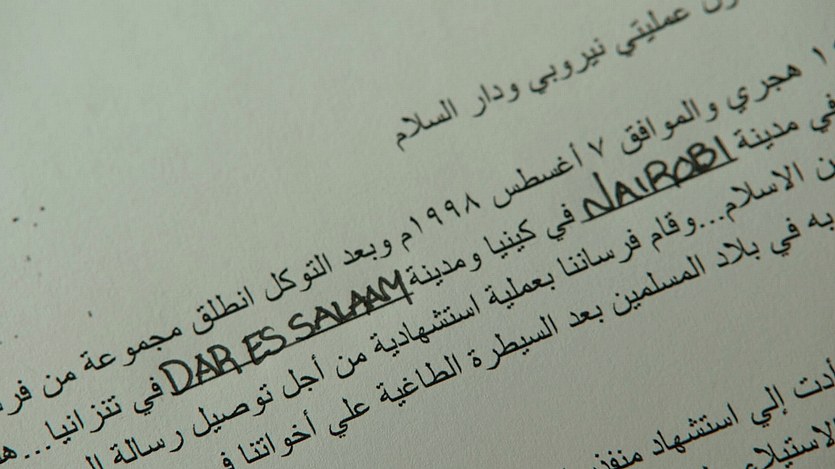 عمليتي نيروبي ودار السلام
هجري والموافق ٧ أغسطس ١٩٩٨م وبعد التوكل انطلق مجموعة من
في مدينة NAIROBI في كينيا ومدينة DAR ES SALAAM في تنزانيا...
الاسلام...وقام فرساننا بعملية استشهادية من أجل توصيل رسالة
به في بلاد المسلمين بعد السيطرة الطاغية علي أخواتنا
إلي استشهاد